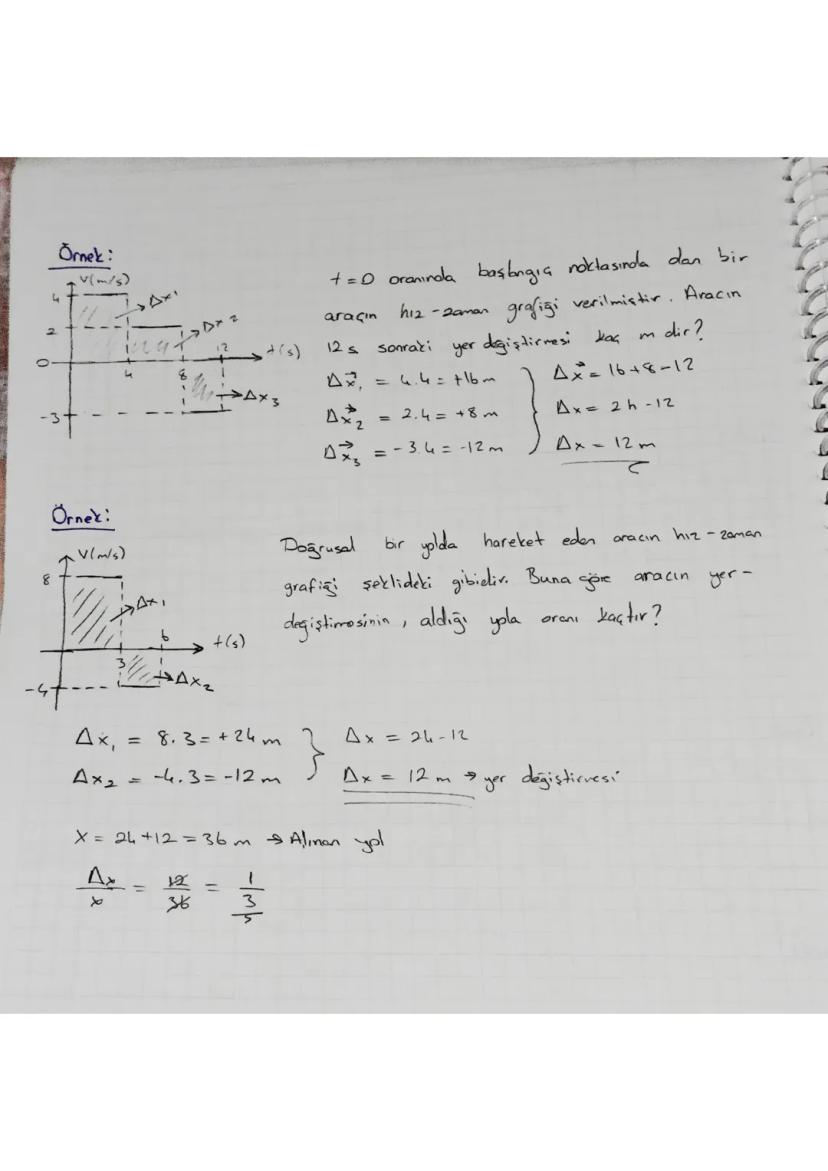 Örnek:
V(m/s)
4
Δx1
2
Δx2
0
4
8
12
t(s)
-3
Δx3
t=0 oranında başlangıç noktasında dan bir
araçın hız-zaman grafiği verilmiştir. Aracın
12s sonraki yer değiştirmesi kaç m dir?
Δx⃗₁ = 4.4 = +16m
Δx⃗₂ = 2.4 = +8 m
Δx⃗₃ = -3.4 = -12m
Δx⃗ = 16+8-12
Δx = 24-12
Δx = 12m
Örnek:
V(m/s)
8
Δx1
6
t(s)
3
-4
Δx₂
Doğrusal bir yolda hareket eden aracın hız-zaman
grafiği şeklideki gibidir. Buna göre aracın yer-
değiştirmesinin, aldığı yola oranı kaçtır?
Δx₁ = 8.3 = +24 m
Δx₂ = -4.3 = -12 m
Δx = 24-12
Δx = 12 m → yer değiştirmesi
X = 24+12 = 36 m → Alınan yol
Δx/x = 12/36 = 1/3